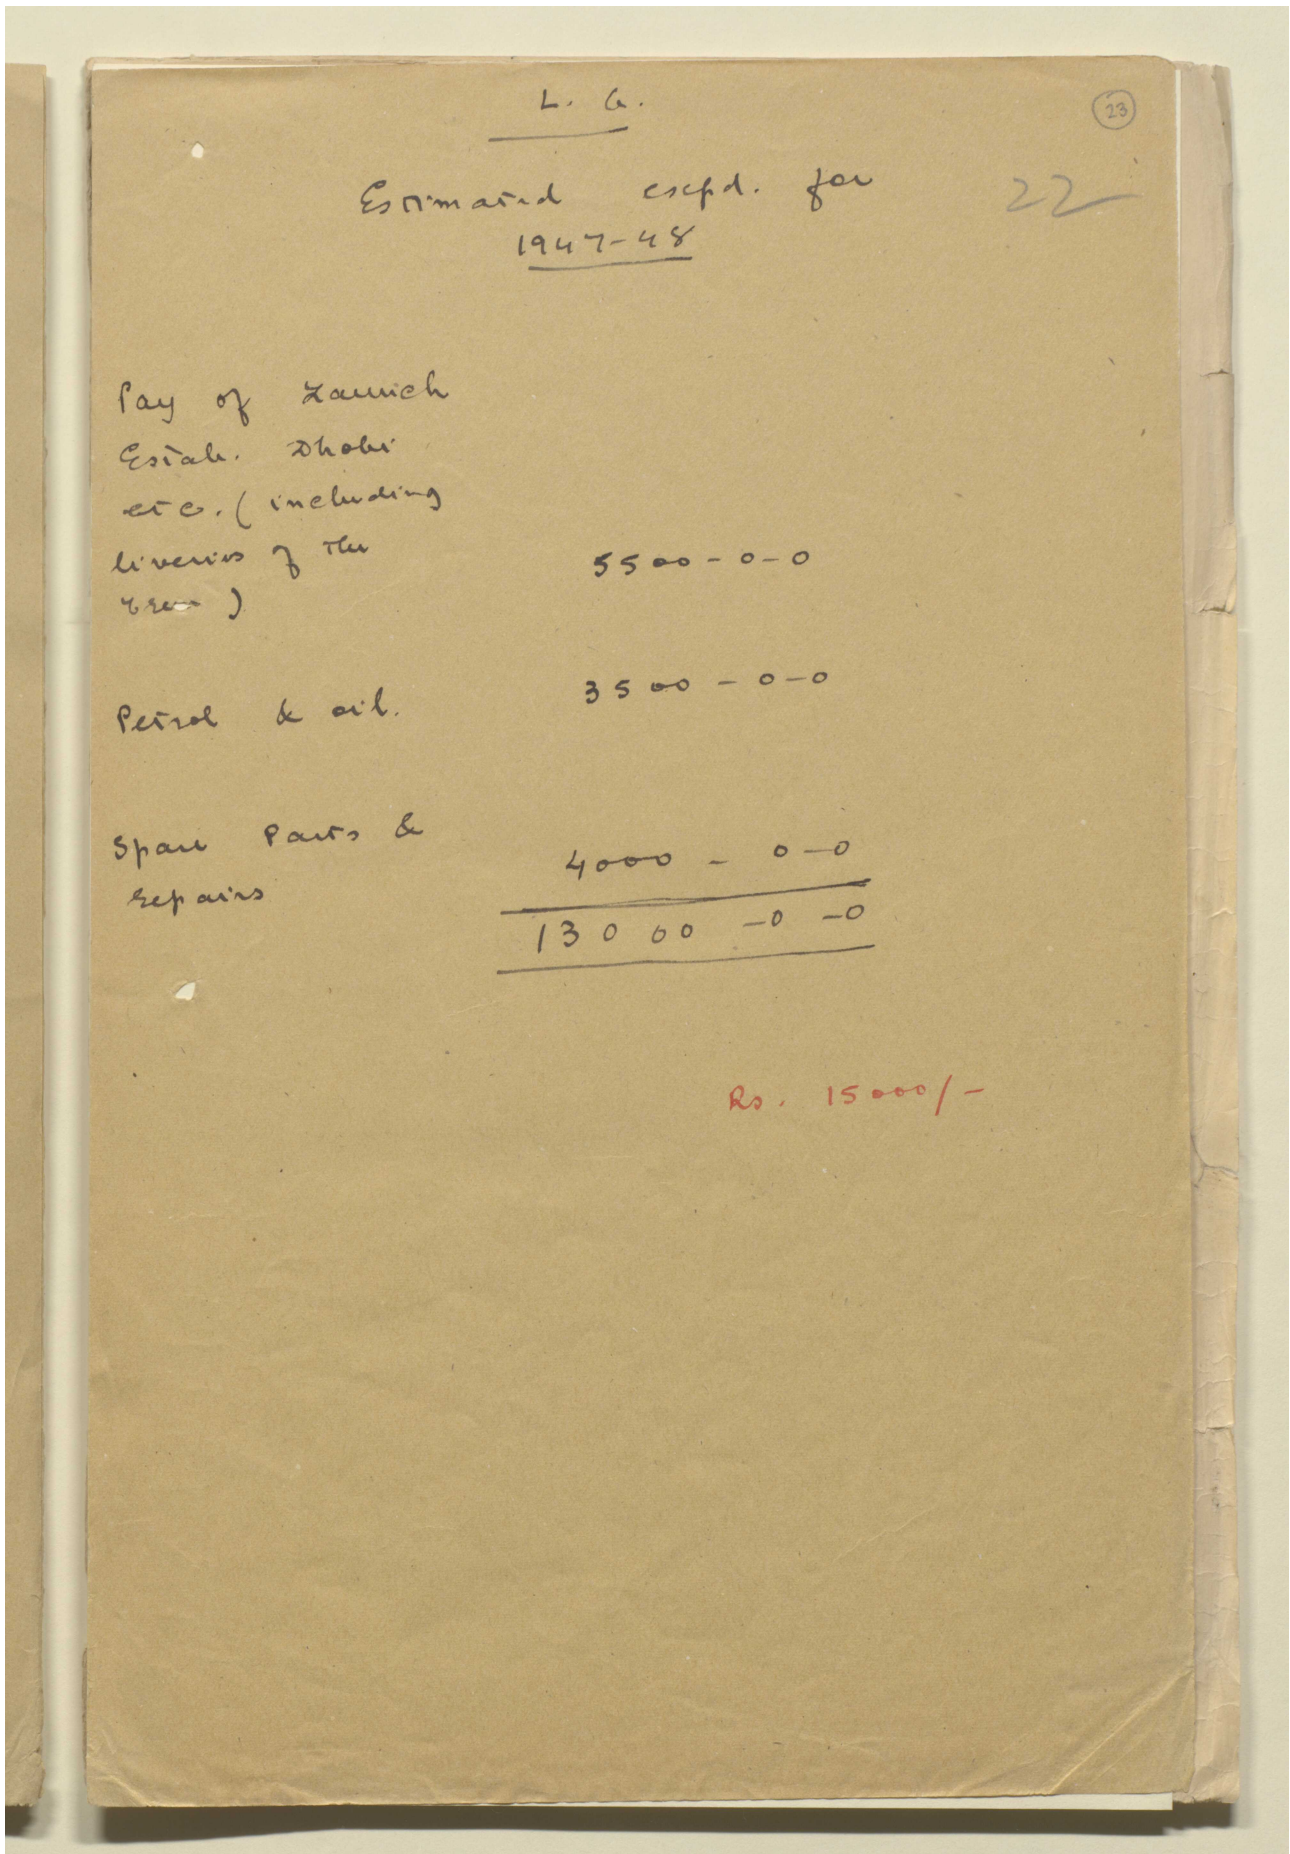 L. G.
23
Estimated expd. for
22
1947-48
Pay of Launch
Estab. Dhobi
etc. (including
liveries of the
crew)
5500-0-0
Petrol & oil.
3500-0-0
Spare Parts &
repairs
4000-0-0
13000-0-0
Rs. 15000/-